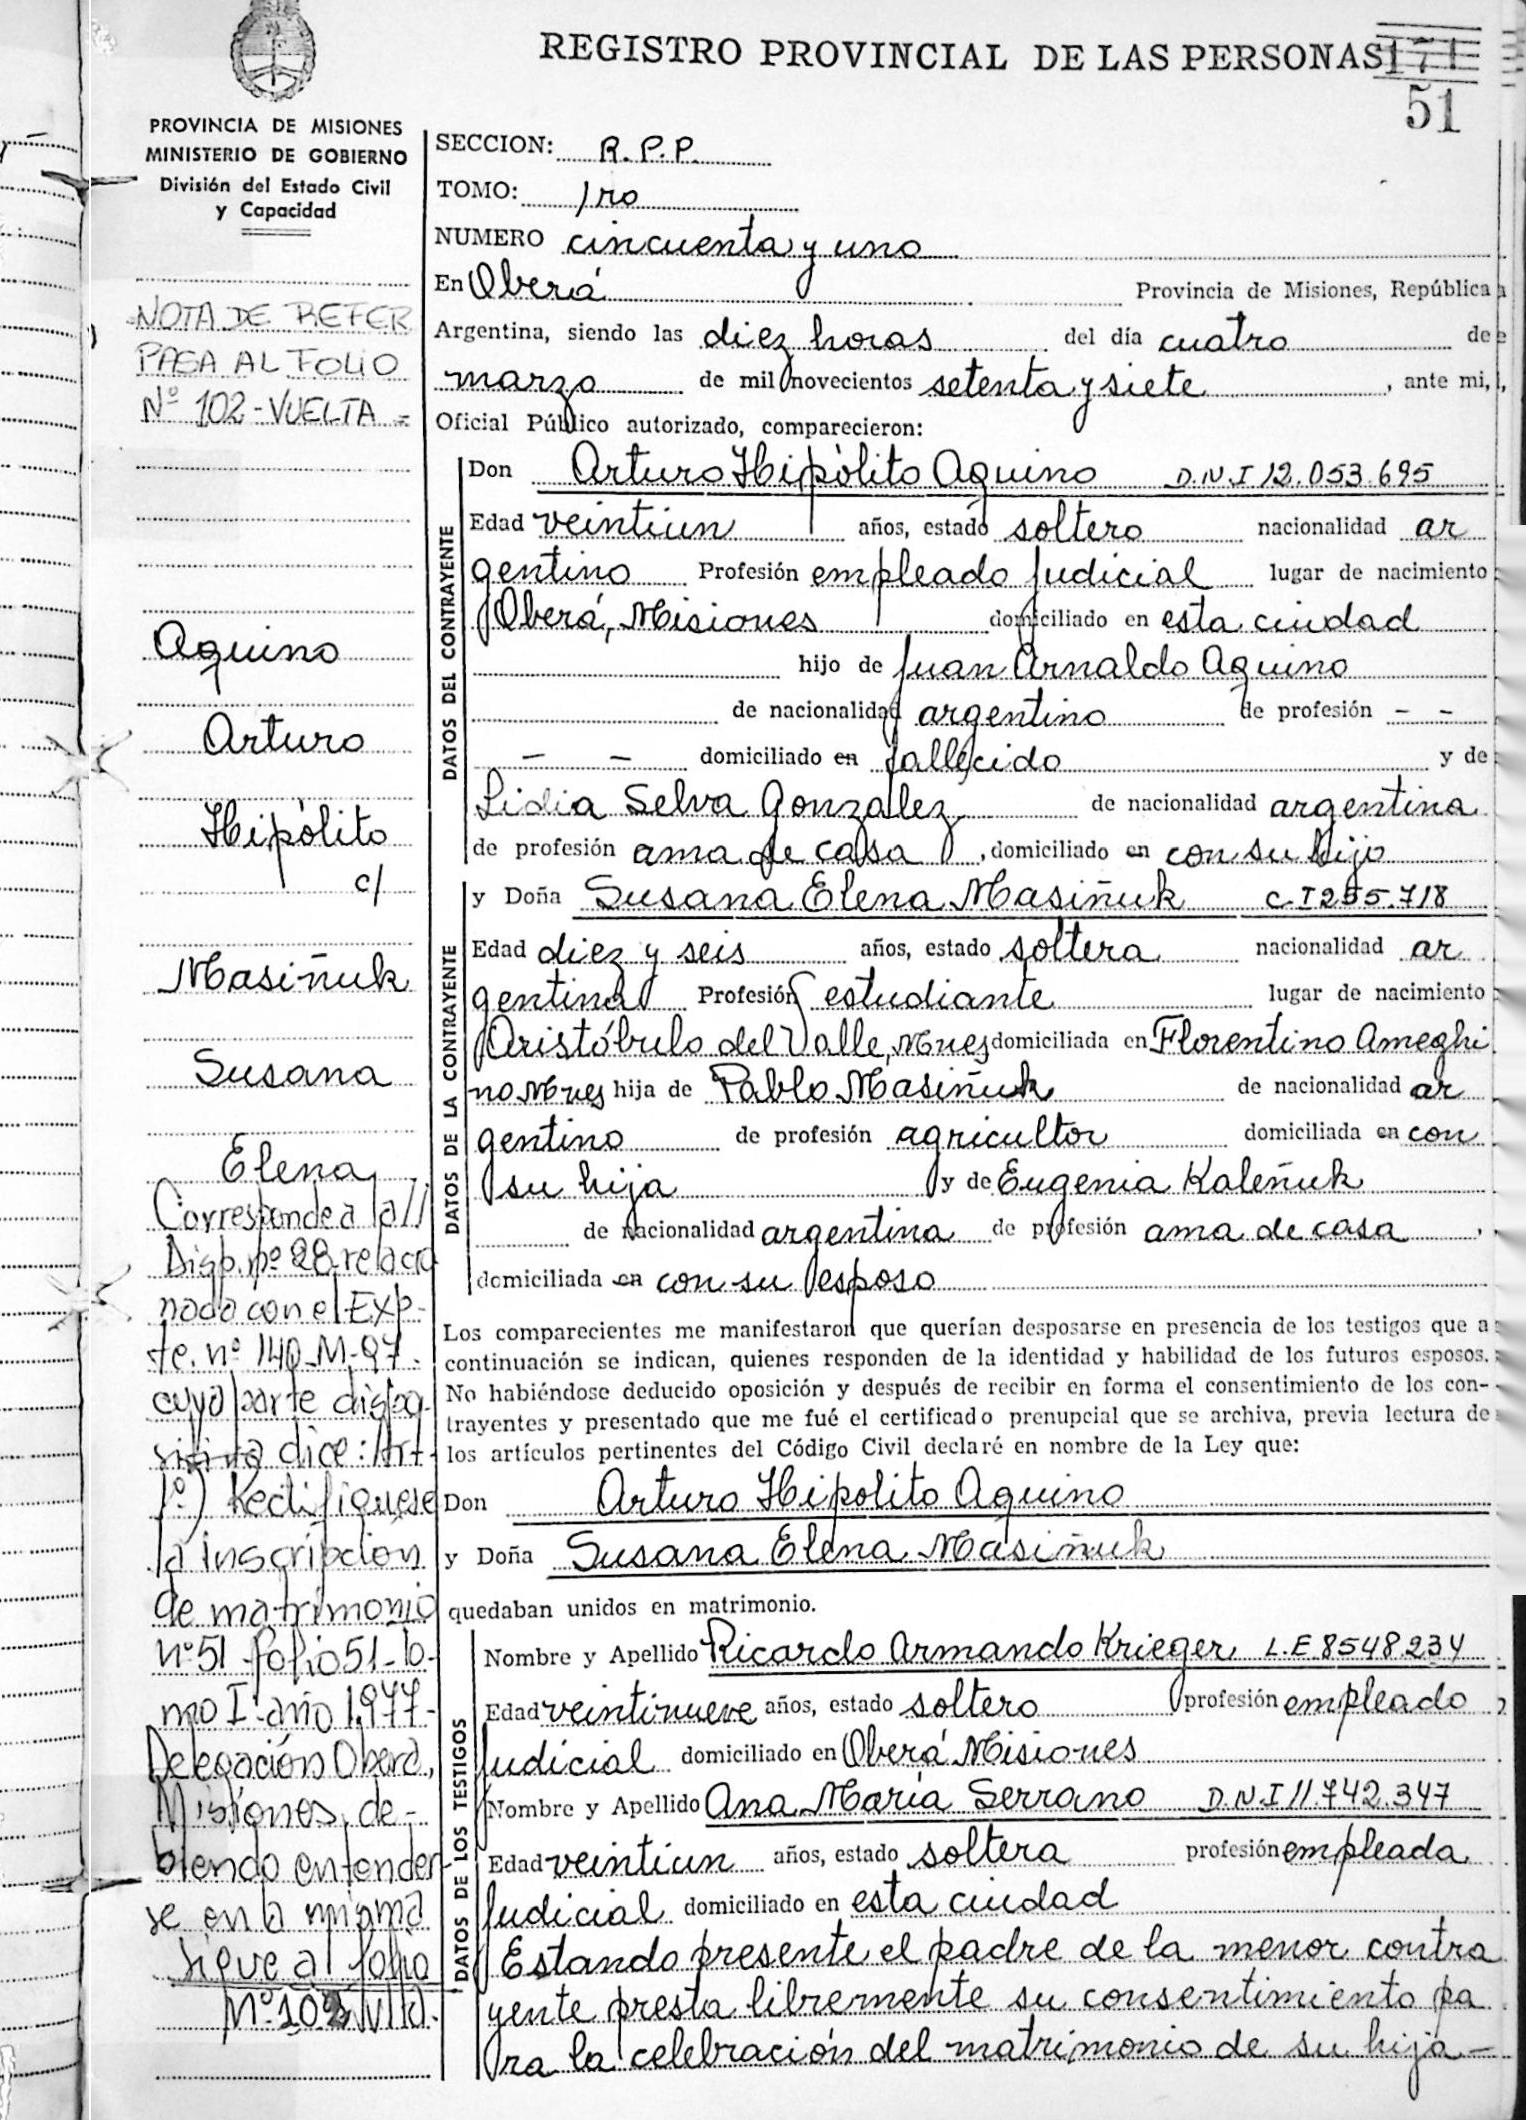 REGISTRO PROVINCIAL DE LAS PERSONAS 171
51
PROVINCIA DE MISIONES
MINISTERIO DE GOBIERNO
División del Estado Civil
y Capacidad
NOTA DE REFER
PASA AL FOLIO
Nº 102-VUELTA=
Aquino
Arturo
Hipólito
c/
Masiñuk
Susana
Elena
Corresponde a la //
Disp. nº 28 relacio
nada con el Exp-
te. nº 140-M-97.
cuya parte dispo-
sitiva dice: Art-
1º) Rectifiquese
la inscripción
de matrimonio
nº 51 folio 51-to-
mo I-año 1.977-
Delegación Oberá,
Misiones, de-
biendo entender
se en la misma
Sigue al folio
Nº 102 Vlta.
SECCION: R.P.P.
TOMO: 1ro
NUMERO cincuenta y uno
En Oberá Provincia de Misiones, República
Argentina, siendo las diez horas del día cuatro de
marzo de mil novecientos setenta y siete, ante mi,
Oficial Público autorizado, comparecieron:
DATOS DEL CONTRAYENTE
Don Arturo Hipólito Aquino D.N.I 12.053.695
Edad veintiun años, estado soltero nacionalidad ar
gentino Profesión empleado judicial lugar de nacimiento
Oberá, Misiones domiciliado en esta ciudad
hijo de Juan Arnaldo Aquino
de nacionalidad argentino de profesión - -
- - domiciliado en fallecido y de
Lidia Selva Gonzalez de nacionalidad argentina
de profesión ama de casa, domiciliado en con su hijo
DATOS DE LA CONTRAYENTE
y Doña Susana Elena Masiñuk C.I 255.718
Edad diez y seis años, estado soltera nacionalidad ar
gentina Profesión estudiante lugar de nacimiento
Aristóbulo del Valle, Mnes domiciliada en Florentino Ameghi
no Mnes hija de Pablo Masiñuk de nacionalidad ar
gentino de profesión agricultor domiciliada en con
su hija y de Eugenia Kaleñuk
de nacionalidad argentina de profesión ama de casa
domiciliada en con su esposo
Los comparecientes me manifestaron que querían desposarse en presencia de los testigos que a
continuación se indican, quienes responden de la identidad y habilidad de los futuros esposos.
No habiéndose deducido oposición y después de recibir en forma el consentimiento de los con-
trayentes y presentado que me fué el certificado prenupcial que se archiva, previa lectura de
los artículos pertinentes del Código Civil declaré en nombre de la Ley que:
Don Arturo Hipolito Aquino
y Doña Susana Elena Masiñuk
quedaban unidos en matrimonio.
DATOS DE LOS TESTIGOS
Nombre y Apellido Ricardo Armando Krieger L.E 8548.234
Edad veintinueve años, estado soltero profesión empleado
judicial domiciliado en Oberá Misiones
Nombre y Apellido Ana María Serrano D.N.I 11.742.347
Edad veintiun años, estado soltera profesión empleada
judicial domiciliado en esta ciudad
Estando presente el padre de la menor contra
yente presta libremente su consentimiento pa
ra la celebración del matrimonio de su hija-